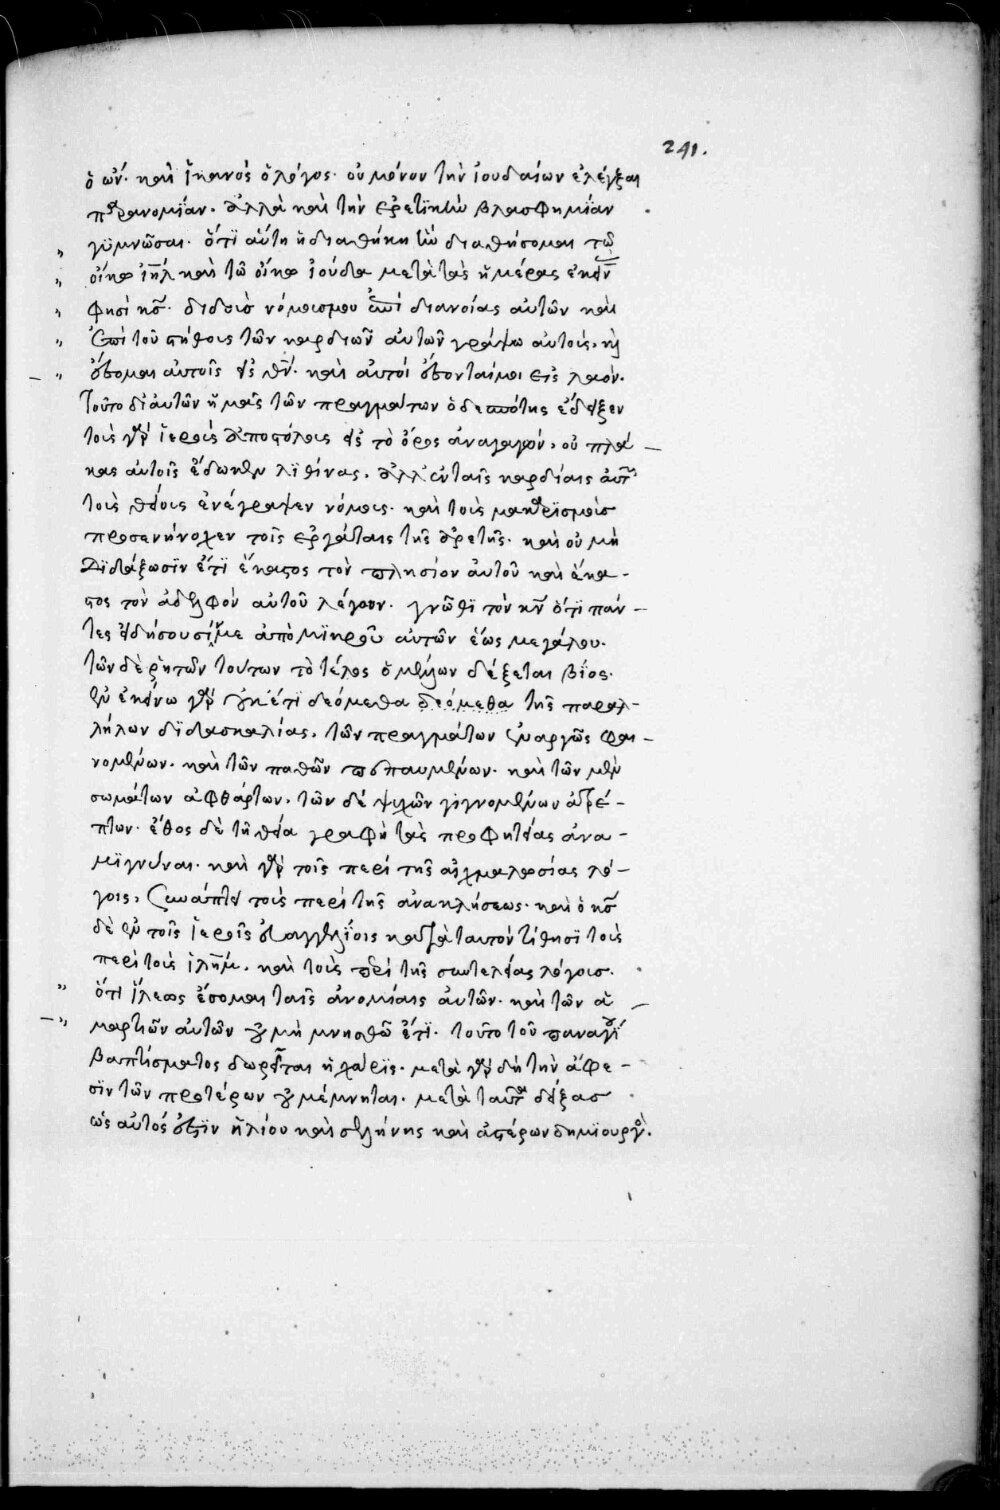 241.
ὁ ὤν· καὶ ἱκανὸς ὁ λόγος· οὐ μόνον τὴν ἰουδαίων ἐλέγξαι
παρανομΐαν· ἀλλὰ καὶ τὴν ερετϊκὴν βλασφημΐαν
γϋμνῶσαι· ὅτϊ αὕτη ἡ διαθήκη ἣν διαθήσομαι τῶ
οἴκω ιηλ καὶ τῶ οἴκω ἰούδα μετὰ τὰς ἡμέρας ἐκείν
φησὶ κς· διδοὺσ νόμουσ μου ἐπὶ διανοίας αὐτῶν καὶ
ἐπὶ τοῦ στήθους τῶν καρδιῶν αὐτῶν γράψω αὐτοὺς· κὶ
ἔσομαι αὐτοῖς εἰς θν· καὶ αὐτοὶ ἔσονταί μοι εἰς λαόν·
Τοῦτο δι' αὐτῶν ἡμᾶς τῶν πραγμάτων ὁ δεσπότης ἐδειξεν
τοὺς γὰρ ἱεροὺς ἀποστόλους εἰς τὸ ὄρος ἀναγαγών, οὐ πλά –
κας αὐτοῖς ἔδωκεν λϊθίνας, ἀλλ' ἐν ταῖς καρδίαις αὐτῶν
τοὺς θείους ἐνέγραψεν νόμους· καὶ τοὺς μακαρϊσμοὺσ
προσενήνοχεν τοῖς ἐργάταις τῆς ἀρετῆς· καὶ οὐ μὴ
Δϊδάξωσϊν ἔτϊ ἕκαστος τὸν πλησίον αὐτοῦ καὶ ἕκα –
στος τὸν ἀδελφὸν αὐτοῦ λέγων· γνῶθϊ τὸν κν ὅτϊ πάν –
τες εἰδήσουσί με ἀπὸ μϊκροῦ αὐτῶν ἕως μεγάλου·
τῶν δὲ ῥητῶν τούτων τὸ τέλος ὁ μέλλων δέξεται βΐος·
ἐν ἐκείνω γὰρ οὐκ ἔτϊ δεόμεθα δεόμεθα τῆς παραλ –
λήλων δϊδασκαλίας, τῶν πραγμάτων ἐναργῶς φαι –
νομένων· καὶ τῶν παθῶν πεπαυμένων· καὶ τῶν μὲν
σωμάτων ἀφθάρτων, τῶν δὲ ψυχῶν γϊγνομένων ἀτρέ –
πτων· ἔθος δὲ τῆ θεία γραφῆ τὰς προφητείας ἀνα –
μϊγνύναι· καὶ γὰρ τοῖς περὶ τῆς αἰχμαλωσίας λό –
γοις, συνάπτει τοὺς περὶ τῆς ἀνακλήσεως· καὶ ὁ κς
δὲ ἐν τοῖς ἱεροῖς εὐαγγελΐοις κατὰ ταυτὸν τίθησϊ τοὺς
περὶ τοὺς ιλημ, καὶ τοὺς περὶ τῆς συντελείας λόγουσ·
ὅτι ἵλεως ἔσομαι ταῖς ἀνομίαις αὐτῶν· καὶ τῶν ἁ –
μαρτιῶν αὐτῶν οὐ μὴ μνησθῶ ἔτϊ· τοῦτο τοῦ παναγί
βαπτίσματος δωρεῖται ἡ χάρϊς· μετὰ γὰρ δὴ τὴν ἄφε –
σϊν τῶν προτέρων οὐ μέμνηται· μετὰ ταῦτα δείξασ
ὡς αὐτός ἐστϊν ἡλίου καὶ σελήνης καὶ ἀστέρων δημϊουργὸς·